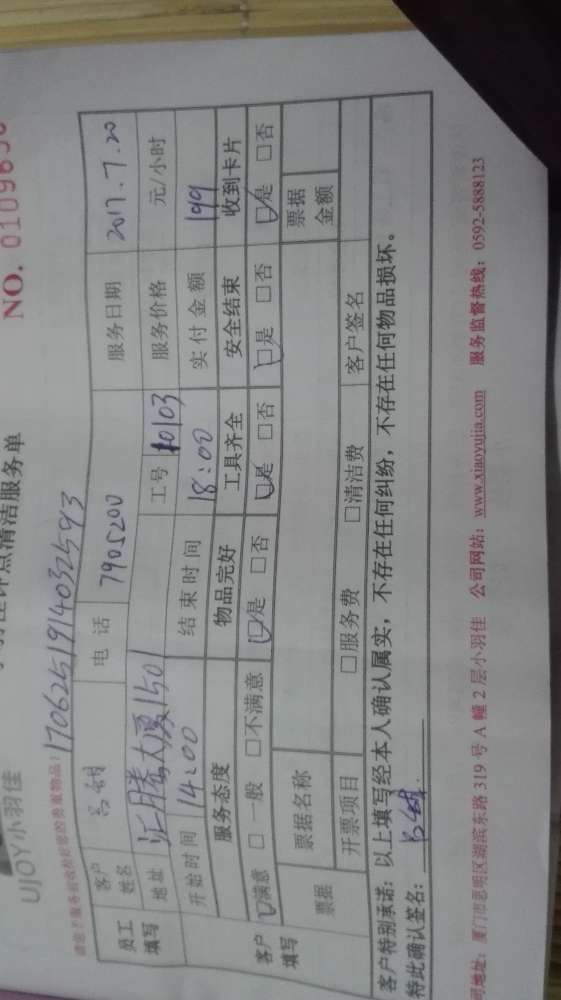 UJOY小羽佳
清洁服务单
NO. 0109
170625191403 2593
员工填写 客户姓名 电话 7905200 服务日期 2017.7.20
地址 汇腾大厦1501 工号 10103 服务价格 元/小时
开始时间 14:00 结束时间 18:00 实付金额 199
客户填写 服务态度 物品完好 工具齐全 安全结束 收到卡片
☑满意 □一般 □不满意 ☑是 □否 ☑是 □否 ☑是 □否 ☑是 □否
票据 票据名称 票据金额
开票项目 □服务费 □清洁费 客户签名
客户特别承诺：以上填写经本人确认属实，不存在任何纠纷，不存在任何物品损坏。
特此确认签名：
司地址：厦门市思明区湖滨东路319号A幢2层小羽佳 公司网站：www.xiaoyujia.com 服务监督热线：0592-5888123